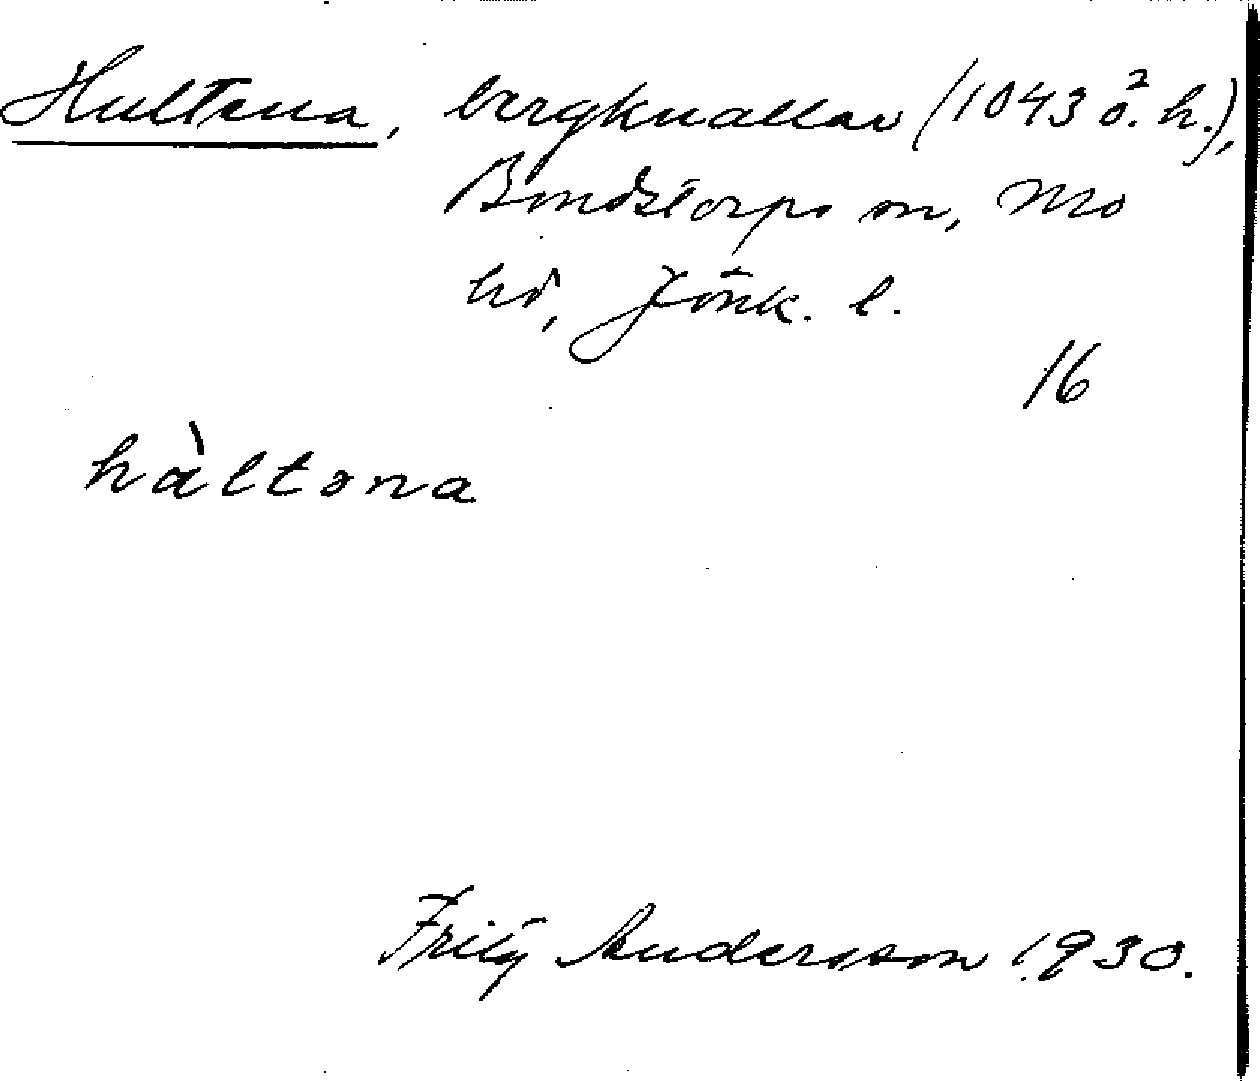 Hultena, bergknallar (1043 ö. h.),
Bondstorps sn, Mo
hd, Jönk. l.
16
hàltona
Fritz Andersson 1930.